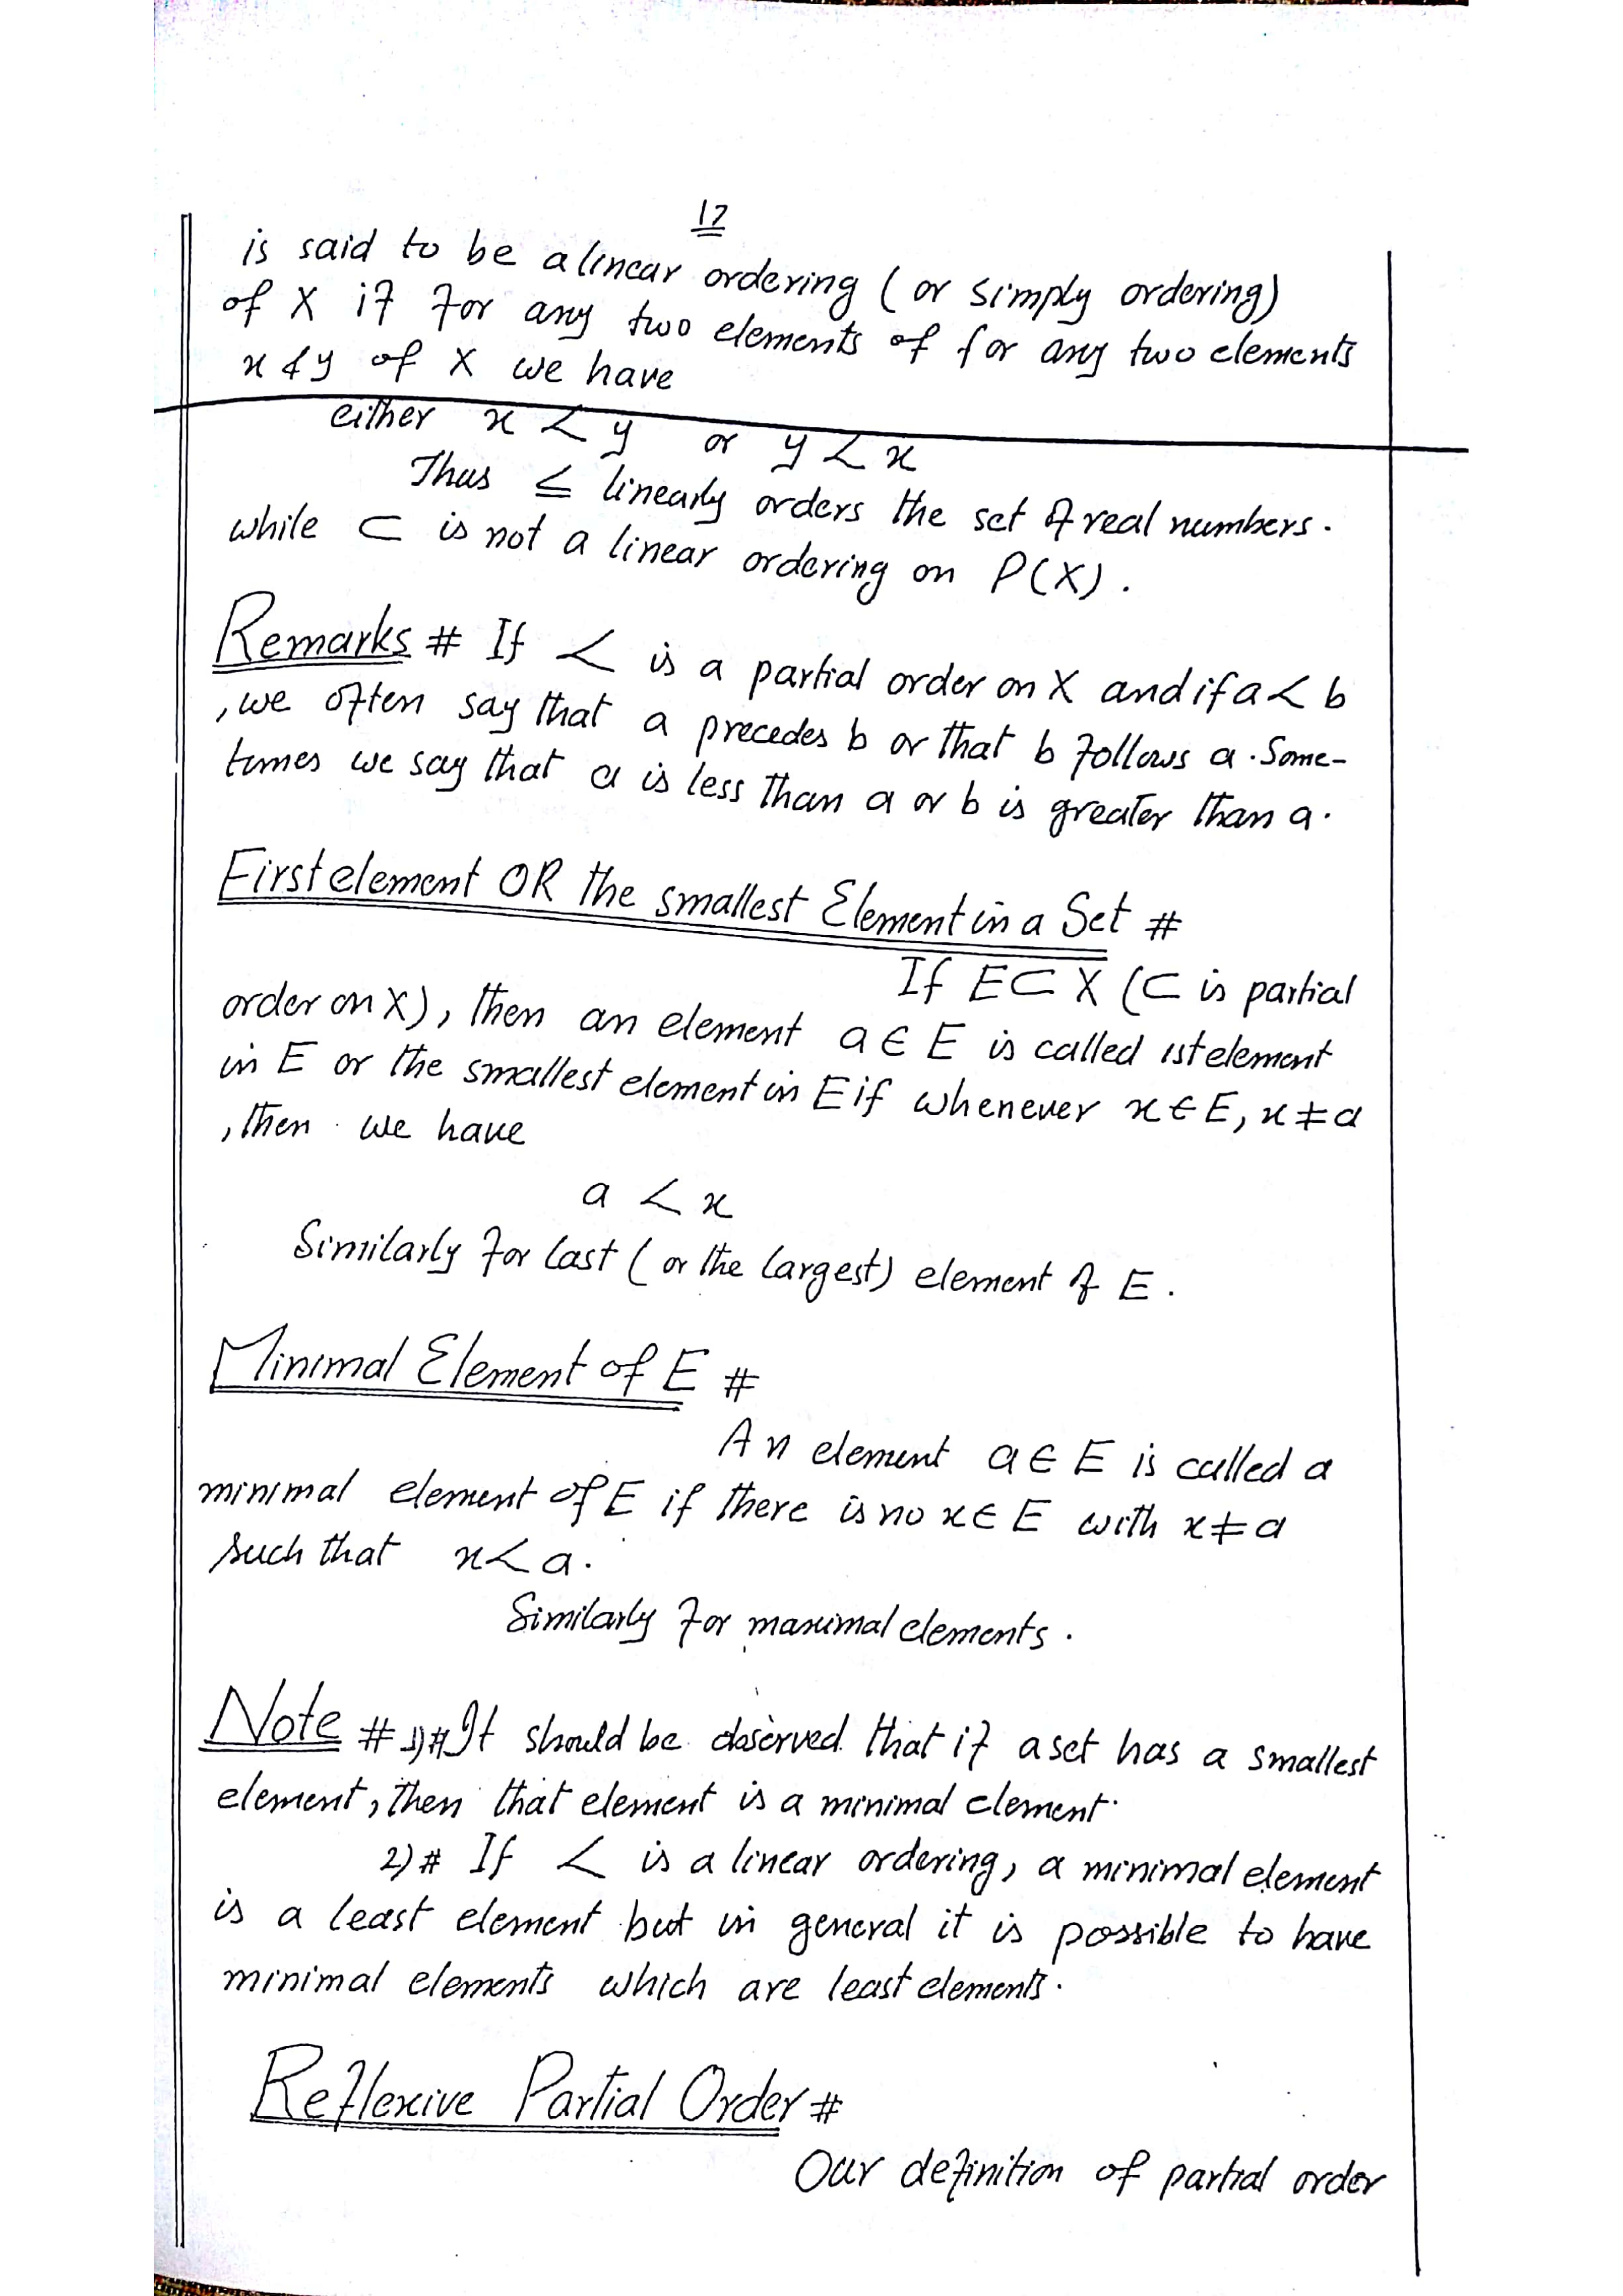 12
is said to be a linear ordering (or simply ordering)
of X if for any two elements of for any two elements
x & y of X we have
either x < y or y < x
Thus ≤ linearly orders the set of real numbers.
while ⊂ is not a linear ordering on P(X).
Remarks # If < is a partial order on X and if a < b
, we often say that a precedes b or that b follows a. Some-
times we say that a is less than a or b is greater than a.
First element OR the smallest Element in a Set #
If E ⊂ X (⊂ is partial
order on X), then an element a ∈ E is called 1st element
in E or the smallest element in E if whenever x ∈ E, x ≠ a
, then we have
a < x
Similarly for last (or the largest) element of E.
Minimal Element of E #
An element a ∈ E is called a
minimal element of E if there is no x ∈ E with x ≠ a
such that x < a.
Similarly for maximal elements.
Note # 1)# It should be observed that if a set has a smallest
element, then that element is a minimal element.
2)# If < is a linear ordering, a minimal element
is a least element but in general it is possible to have
minimal elements which are least elements.
Reflexive Partial Order #
Our definition of partial order